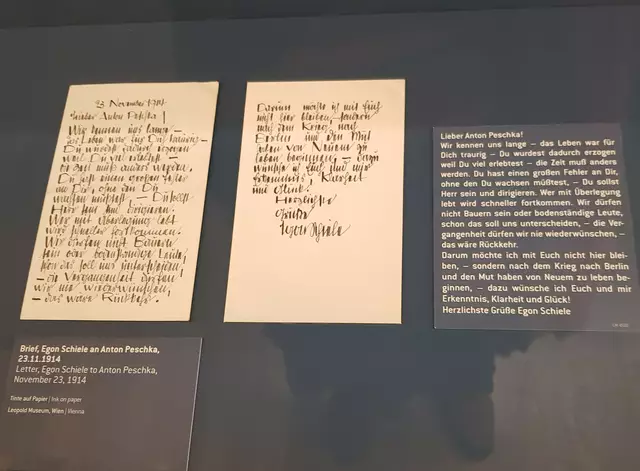 23. November 1914.
Lieber Anton Peschka!
Wir kennen uns lange –
das Leben war für Dich traurig –
Du wurdest dadurch erzogen
weil Du viel erlebtest –
die Zeit muß anders werden.
Du hast einen großen Fehler
an Dir, ohne den Du
wachsen müßtest, – Du sollst
Herr sein und dirigieren.
Wer mit Überlegung lebt
wird schneller fortkommen.
Wir dürfen nicht Bauern
sein oder bodenständige Leute,
schon das soll uns unterscheiden,
– die Vergangenheit dürfen
wir nie wiederwünschen,
– das wäre Rückkehr.
Darum möchte ich mit Euch
nicht hier bleiben, – sondern
nach dem Krieg nach
Berlin und den Mut
haben von Neuem zu
leben beginnen, – dazu
wünsche ich Euch und mir
Erkenntnis, Klarheit
und Glück!
Herzlichste
Grüße
Egon Schiele
Lieber Anton Peschka!
Wir kennen uns lange – das Leben war für
Dich traurig – Du wurdest dadurch erzogen
weil Du viel erlebtest – die Zeit muß anders
werden. Du hast einen großen Fehler an Dir,
ohne den Du wachsen müßtest, – Du sollst
Herr sein und dirigieren. Wer mit Überlegung
lebt wird schneller fortkommen. Wir dürfen
nicht Bauern sein oder bodenständige Leute,
schon das soll uns unterscheiden, – die Ver-
gangenheit dürfen wir nie wiederwünschen, –
das wäre Rückkehr.
Darum möchte ich mit Euch nicht hier blei-
ben, – sondern nach dem Krieg nach Berlin
und den Mut haben von Neuem zu leben be-
ginnen, – dazu wünsche ich Euch und mir
Erkenntnis, Klarheit und Glück!
Herzlichste Grüße Egon Schiele
Brief, Egon Schiele an Anton Peschka,
23.11.1914
Letter, Egon Schiele to Anton Peschka,
November 23, 1914
Tinte auf Papier | Ink on paper
Leopold Museum, Wien | Vienna